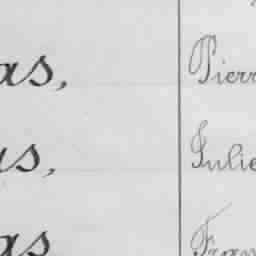 as, Pierr
us, Julie
as Fran